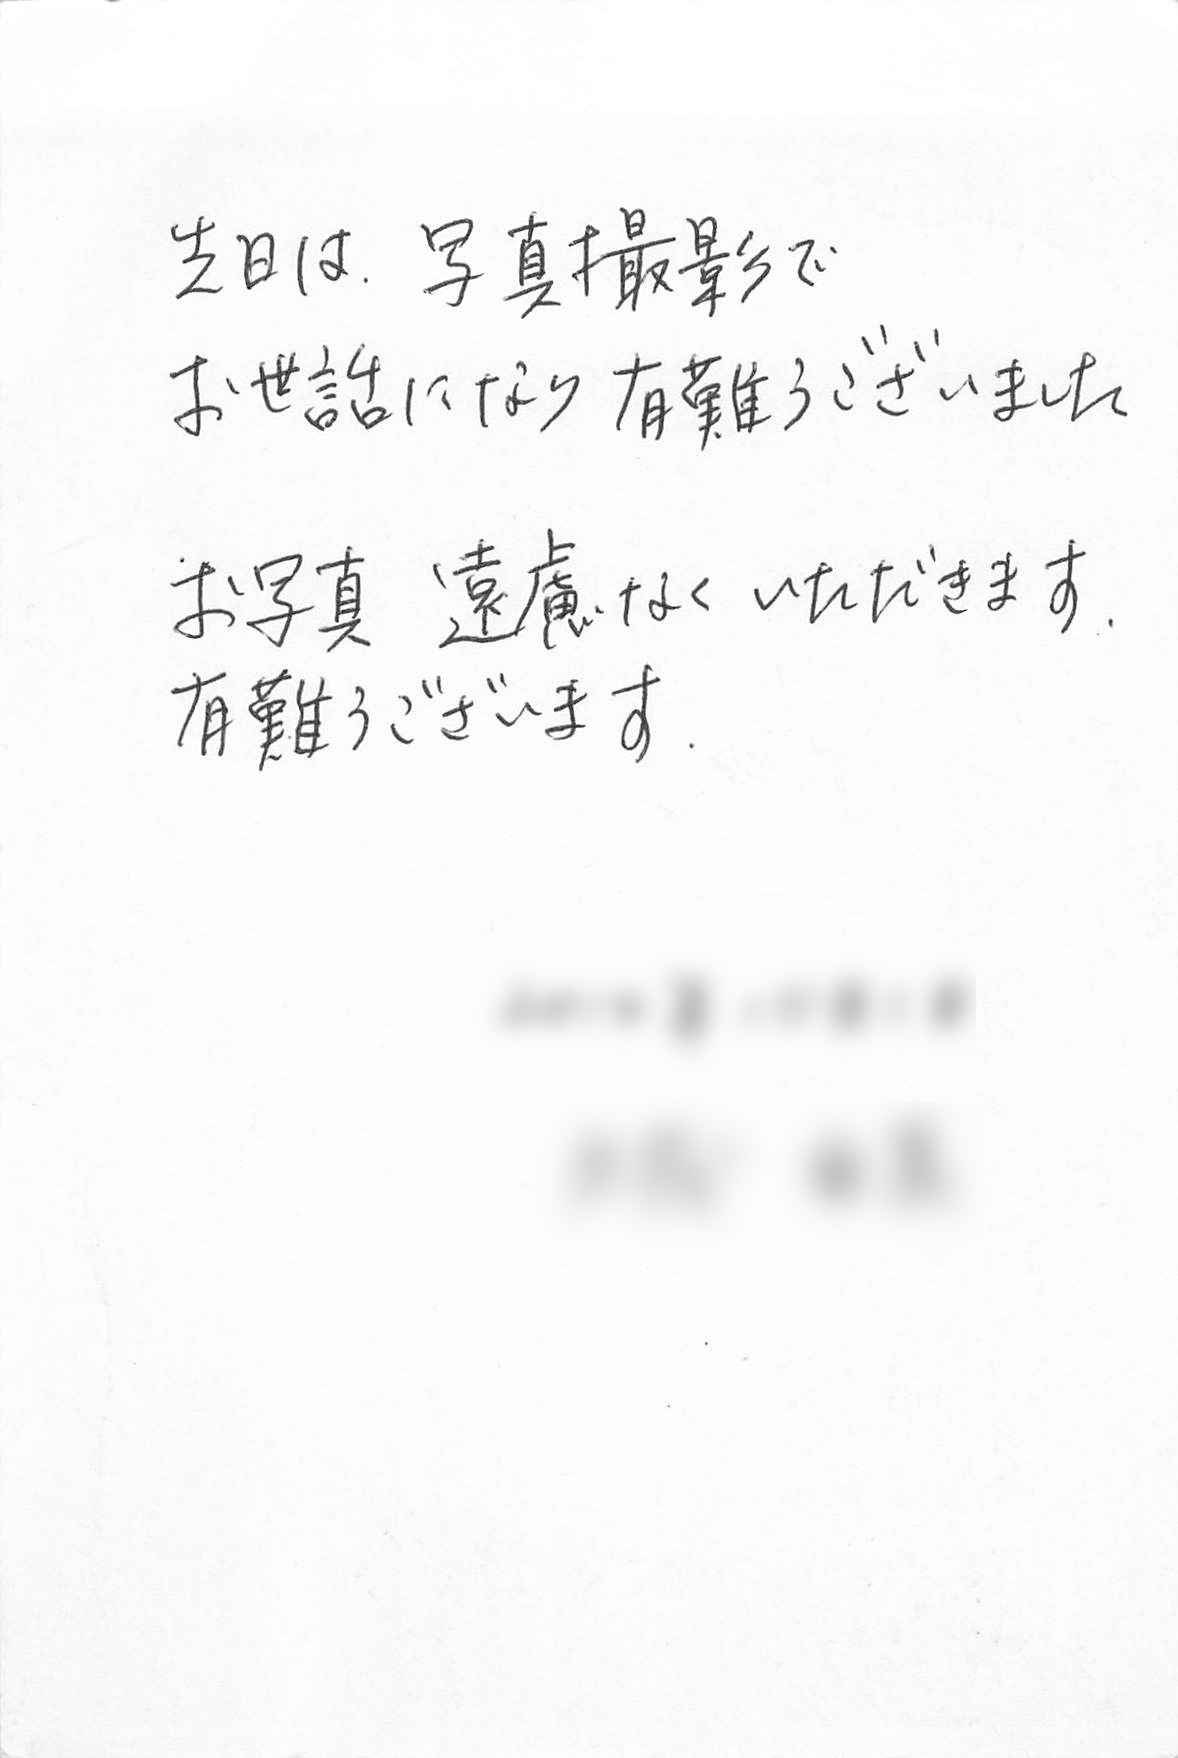 先日は.写真撮影で
お世話になり有難うございました
お写真 遠慮なくいただきます.
有難うございます.